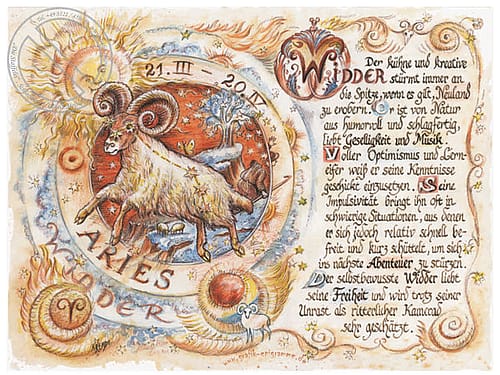 21. III – 20. IV
ARIES
WIDDER
Der kühne und kreative
WIDDER stürmt immer an
die Spitze, wenn es gilt, Neuland
zu erobern. Er ist von Natur
aus humorvoll und schlagfertig,
liebt Geselligkeit und Musik.
Voller Optimismus und Lern-
eifer weiß er seine Kenntnisse
geschickt einzusetzen. Seine
Impulsivität bringt ihn oft in
schwierige Situationen, aus denen
er sich jedoch relativ schnell be-
freit und kurz schüttelt, um sich
ins nächste Abenteuer zu stürzen.
Der selbstbewusste Widder liebt
seine Freiheit und wird trotz seiner
Unrast als ritterlicher Kamerad
sehr geschätzt.
www.grafik-epigramme.de